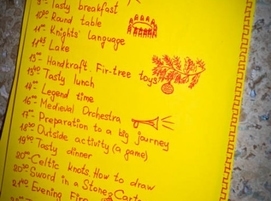 Tasty breakfast
Round table
Knights' Language
Lake
13⁰⁰ Handkraft Fir-tree toys
Tasty lunch
14⁰⁰ Legend time
16⁰⁰ Medieval Orchestra
17⁰⁰ Preparation to a big journey
18⁰⁰ Outside activity (a game)
Tasty dinner
20⁰⁰ Celtic knots. How to draw
Sword in a Stone
Evening